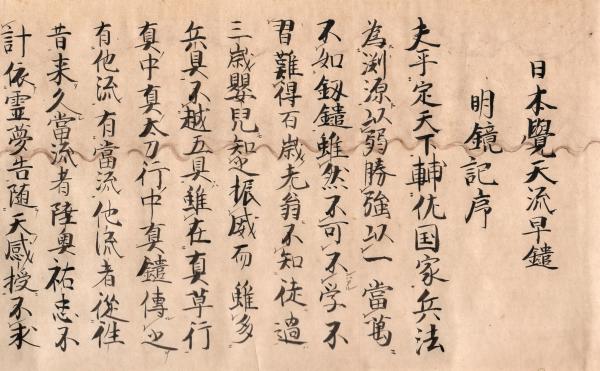 日本覺天流早鑓
明鏡記序
夫平定天下輔佐国家兵法
為渕源以弱勝強以一當萬
不如釼鑓雖然不可不学不
習難得百歳老翁不知徒過
三歳嬰児知之振威而雖多
兵具不越五具雖在真草行
真中真太刀行中真鑓傳之
有他流有當流他流者従往
昔来久當流者陸奥祐忠不
計依霊夢告随天感授不求